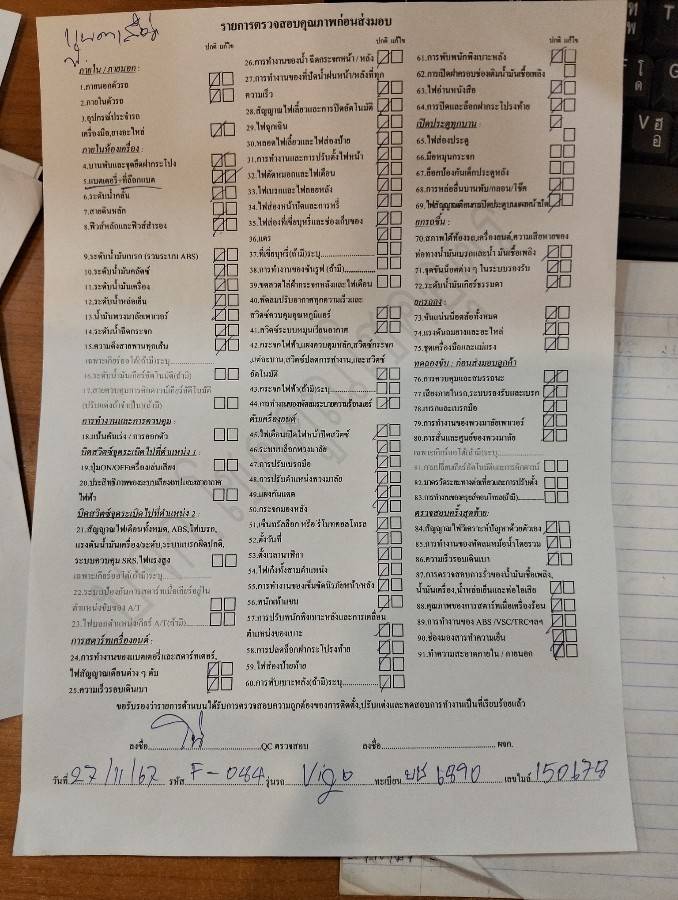 รายการตรวจสอบคุณภาพก่อนส่งมอบ
ปกติ แก้ไข
ภายใน / ภายนอก :
1.ภายนอกตัวรถ
2.ภายในตัวรถ
3.อุปกรณ์ประจำรถ
เครื่องมือ,ยางอะไหล่
ภายในห้องเครื่อง :
4.บานพับและชุดยึดฝากระโปรง
5.แบตเตอรี่+ที่ล็อกแบต
6.ระดับน้ำกลั่น
7.สายดินหลัก
8.ฟิวส์หลักและฟิวส์สำรอง
9.ระดับน้ำมันเบรก (รวมระบบ ABS)
10.ระดับน้ำมันคลัตช์
11.ระดับน้ำมันเครื่อง
12.ระดับน้ำหล่อเย็น
13.น้ำมันพวงมาลัยเพาเวอร์
14.ระดับน้ำฉีดกระจก
15.ความตึงสายพานทุกเส้น
เฉพาะเกียร์ออโต้(ถ้ามี)ระบุ
16.ระดับน้ำมันเกียร์อัตโนมัติ(ถ้ามี)
(ปรับแต่งถ้าจำเป็น)(ถ้ามี)
การทำงานและการควบคุม :
18.แป้นคันเร่ง / การออกตัว
บิดสวิตซ์จุดระเบิดไปที่ตำแหน่ง 1 :
19.ปุ่มON/OFFเครื่องเล่นเสียง
ไฟฟ้า
บิดสวิตซ์จุดระเบิดไปที่ตำแหน่ง 2 :
21.สัญญาณไฟเตือนทั้งหมด, ABS,ไฟเบรก,
แรงดันน้ำมันเครื่อง/ระดับ,ระบบเบรกผิดปกติ,
ระบบควบคุม SRS,ไฟแรงสูง
เฉพาะเกียร์ออโต้(ถ้ามี)ระบุ
22.ระบบป้องกันการสตาร์ทเมื่อเกียร์อยู่ใน
ตำแหน่งขับของ A/T
23.ไฟบอกตำแหน่งเกียร์ A/T(ถ้ามี)
การสตาร์ทเครื่องยนต์ :
24.การทำงานของแบตเตอรี่และสตาร์ทเตอร์,
ไฟสัญญาณเตือนต่าง ๆ ดับ
25.ความเร็วรอบเดินเบา
ปกติ แก้ไข
26.การทำงานของน้ำ ฉีดกระจกหน้า / หลัง
27.การทำงานของที่ปัดน้ำฝนหน้า/หลังที่ทุก
ความเร็ว
28.สัญญาณไฟเลี้ยวและการปิดอัตโนมัติ
29.ไฟฉุกเฉิน
30.หลอดไฟเลี้ยวและไฟส่องป้าย
31.การทำงานและการปรับตั้งไฟหน้า
32.ไฟตัดหมอกและไฟเตือน
33.ไฟเบรกและไฟถอยหลัง
34.ไฟส่องหน้าปัดและการหรี่
35.ไฟส่องที่เขี่ยบุหรี่และช่องเก็บของ
36.แตร
37.ที่เขี่ยบุหรี่(ถ้ามี)ระบุ
38.การทำงานของซันรูฟ (ถ้ามี)
39.ขดลวดไล่ฝ้ากระจกหลังและไฟเตือน
40.พัดลมปรับอากาศทุกความเร็วและ
สวิตซ์ควบคุมอุณหภูมิแอร์
41.สวิตซ์ระบบหมุนเวียนอากาศ
42.กระจกไฟฟ้าแผงควบคุมหลัก,สวิตซ์กระจก
แต่ละบาน,สวิตซ์ปลดการทำงาน,และสวิตซ์
อัตโนมัติ
43.กระจกไฟฟ้า(ถ้ามี)ระบุ
44.การทำงานของพัดลมระบายความร้อนแอร์
ดับเครื่องยนต์
45.ไฟเตือนเปิดไฟหน้าปิดสวิตซ์
46.ระบบล็อกพวงมาลัย
47.การปรับเบรกมือ
48.การปรับตำแหน่งพวงมาลัย
49.แผงกันแดด
50.กระจกมองหลัง
51.เซ็นทรัลล็อก หรือ รีโมทคอลโทรล
52.ตั้งวันที่
53.ตั้งเวลานาฬิกา
54.ไฟเก๋งทั้งสามตำแหน่ง
55.การทำงานของเข็มขัดนิรภัยหน้า/หลัง
56.พนักเท้าแขน
57.การปรับพนักพิงเบาะหลังและการเคลื่อน
ตำแหน่งของเบาะ
58.การปลดล็อกฝากระโปรงท้าย
59.ไฟส่องป้ายท้าย
60.การพับเบาะหลัง(ถ้ามี)ระบุ
ปกติ แก้ไข
61.การพับพนักพิงเบาะหลัง
62.การเปิดฝาครอบช่องเติมน้ำมันเชื้อเพลิง
63.ไฟอ่านหนังสือ
64.การปิดและล็อกฝากระโปรงท้าย
เปิดประตูทุกบาน :
65.ไฟส่องประตู
66.มือหมุนกระจก
67.ล็อกป้องกันเด็กประตูหลัง
68.การหล่อลื่นบานพับ/กลอน/โช๊ค
ยกรถขึ้น :
70.สภาพใต้ท้องรถ,เครื่องยนต์,ความเสียหายของ
ท่อทางน้ำมันเบรกและน้ำ มันเชื้อเพลิง
71.จุดขันน๊อตต่าง ๆ ในระบบรองรับ
72.ระดับน้ำมันเกียร์ธรรมดา
ยกรถลง :
73.ขันแน่นน๊อตล้อทั้งหมด
74.แรงดันลมยางและอะไหล่
75.ชุดเครื่องมือและแม่แรง
ทดลองขับ : ก่อนส่งมอบลูกค้า
76.การควบคุมและสมรรถนะ
77.เสียงภายในรถ,ระบบรองรับและเบรก
78.เบรกและเบรกมือ
79.การทำงานของพวงมาลัยเพาเวอร์
80.การสั่นและศูนย์ของพวงมาลัย
เฉพาะเกียร์ออโต้(ถ้ามี)ระบุ
82.มาตรวัดระยะทางต่อเที่ยวและการปรับตั้ง
ตรวจสอบครั้งสุดท้าย:
84.สัญญาณไฟวิเคราะห์ปัญหาด้วยตัวเอง
85.การทำงานของพัดลมหม้อน้ำโดยรวม
86.ความเร็วรอบเดินเบา
87.การตรวจสอบการรั่วของน้ำมันเชื้อเพลิง,
น้ำมันเครื่อง,น้ำหล่อเย็นและท่อไอเสีย
88.คุณภาพของการสตาร์ทเมื่อเครื่องร้อน
89.การทำงานของ ABS /VSC/TRCฯลฯ
90.ช่องมองสารทำความเย็น
91.ทำความสะอาดภายใน / ภายนอก
ขอรับรองว่ารายการด้านบนได้รับการตรวจสอบความถูกต้องของการติดตั้ง,ปรับแต่งและทดสอบการทำงานเป็นที่เรียบร้อยแล้ว
ลงชื่อ QC ตรวจสอบ ลงชื่อ ผจก.
วันที่ 27/11/67 รหัส F-084 รุ่นรถ Vigo ทะเบียน 6890 เลขไมล์ 150678